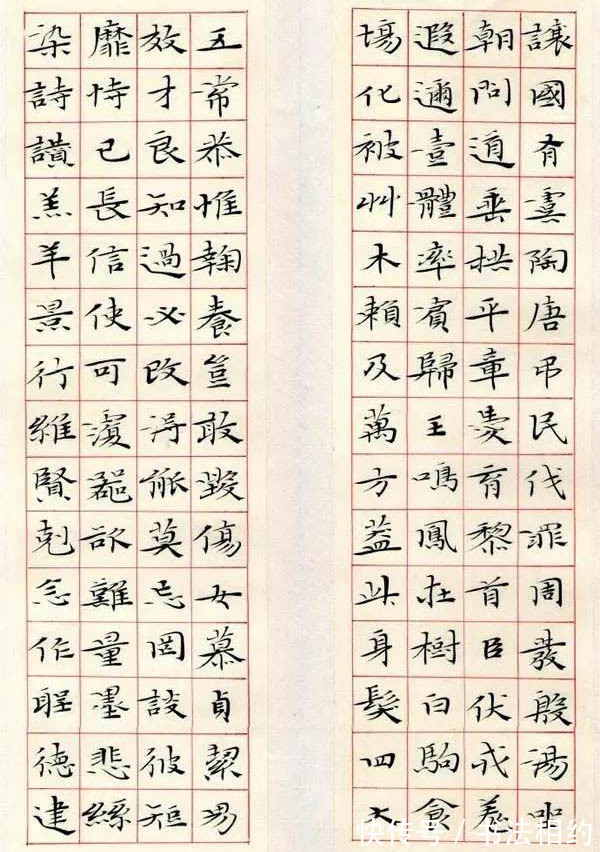 讓國有虞陶唐弔民伐罪周發殷湯坐
朝問道垂拱平章愛育黎首臣伏戎羌
遐邇壹體率賓歸王鳴鳳在樹白駒食
場化被艸木賴及萬方蓋此身髮四大
五常恭惟鞠養豈敢毀傷女慕貞絜男
效才良知過必改得能莫忘罔談彼短
靡恃己長信使可覆器欲難量墨悲絲
染詩讚羔羊景行維賢剋念作聖德建
快传号 / 书法相约